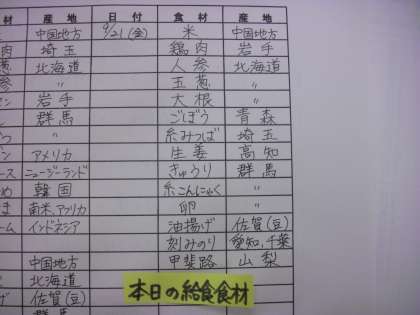 材 産地 日付 食材 産地
中国地方 9/21(金) 米 中国地方
肉 埼玉 鶏肉 岩手
葱 北海道 人参 北海道
参 〃 玉葱 〃
ン 岩手 大根 〃
群馬 ごぼう 青森
〃 糸みつば 埼玉
ン アメリカ 生姜 高知
ース ニュージーランド きゅうり 群馬
め 韓国 糸こんにゃく 〃
ま 南米,アフリカ 卵 〃
ーム インドネシア 油揚げ 佐賀(豆)
刻みのり 愛知,千葉
中国地方 甲斐路 山梨
北海道
げ 佐賀(豆)
群馬
本日の給食食材